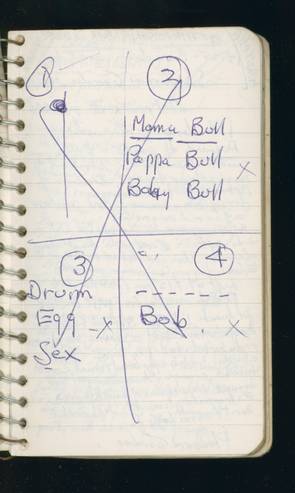 1
2
Mama Bull
Pappa Bull
Baby Bull x
3
Drum
Egg x
Sex
4
Bob. x